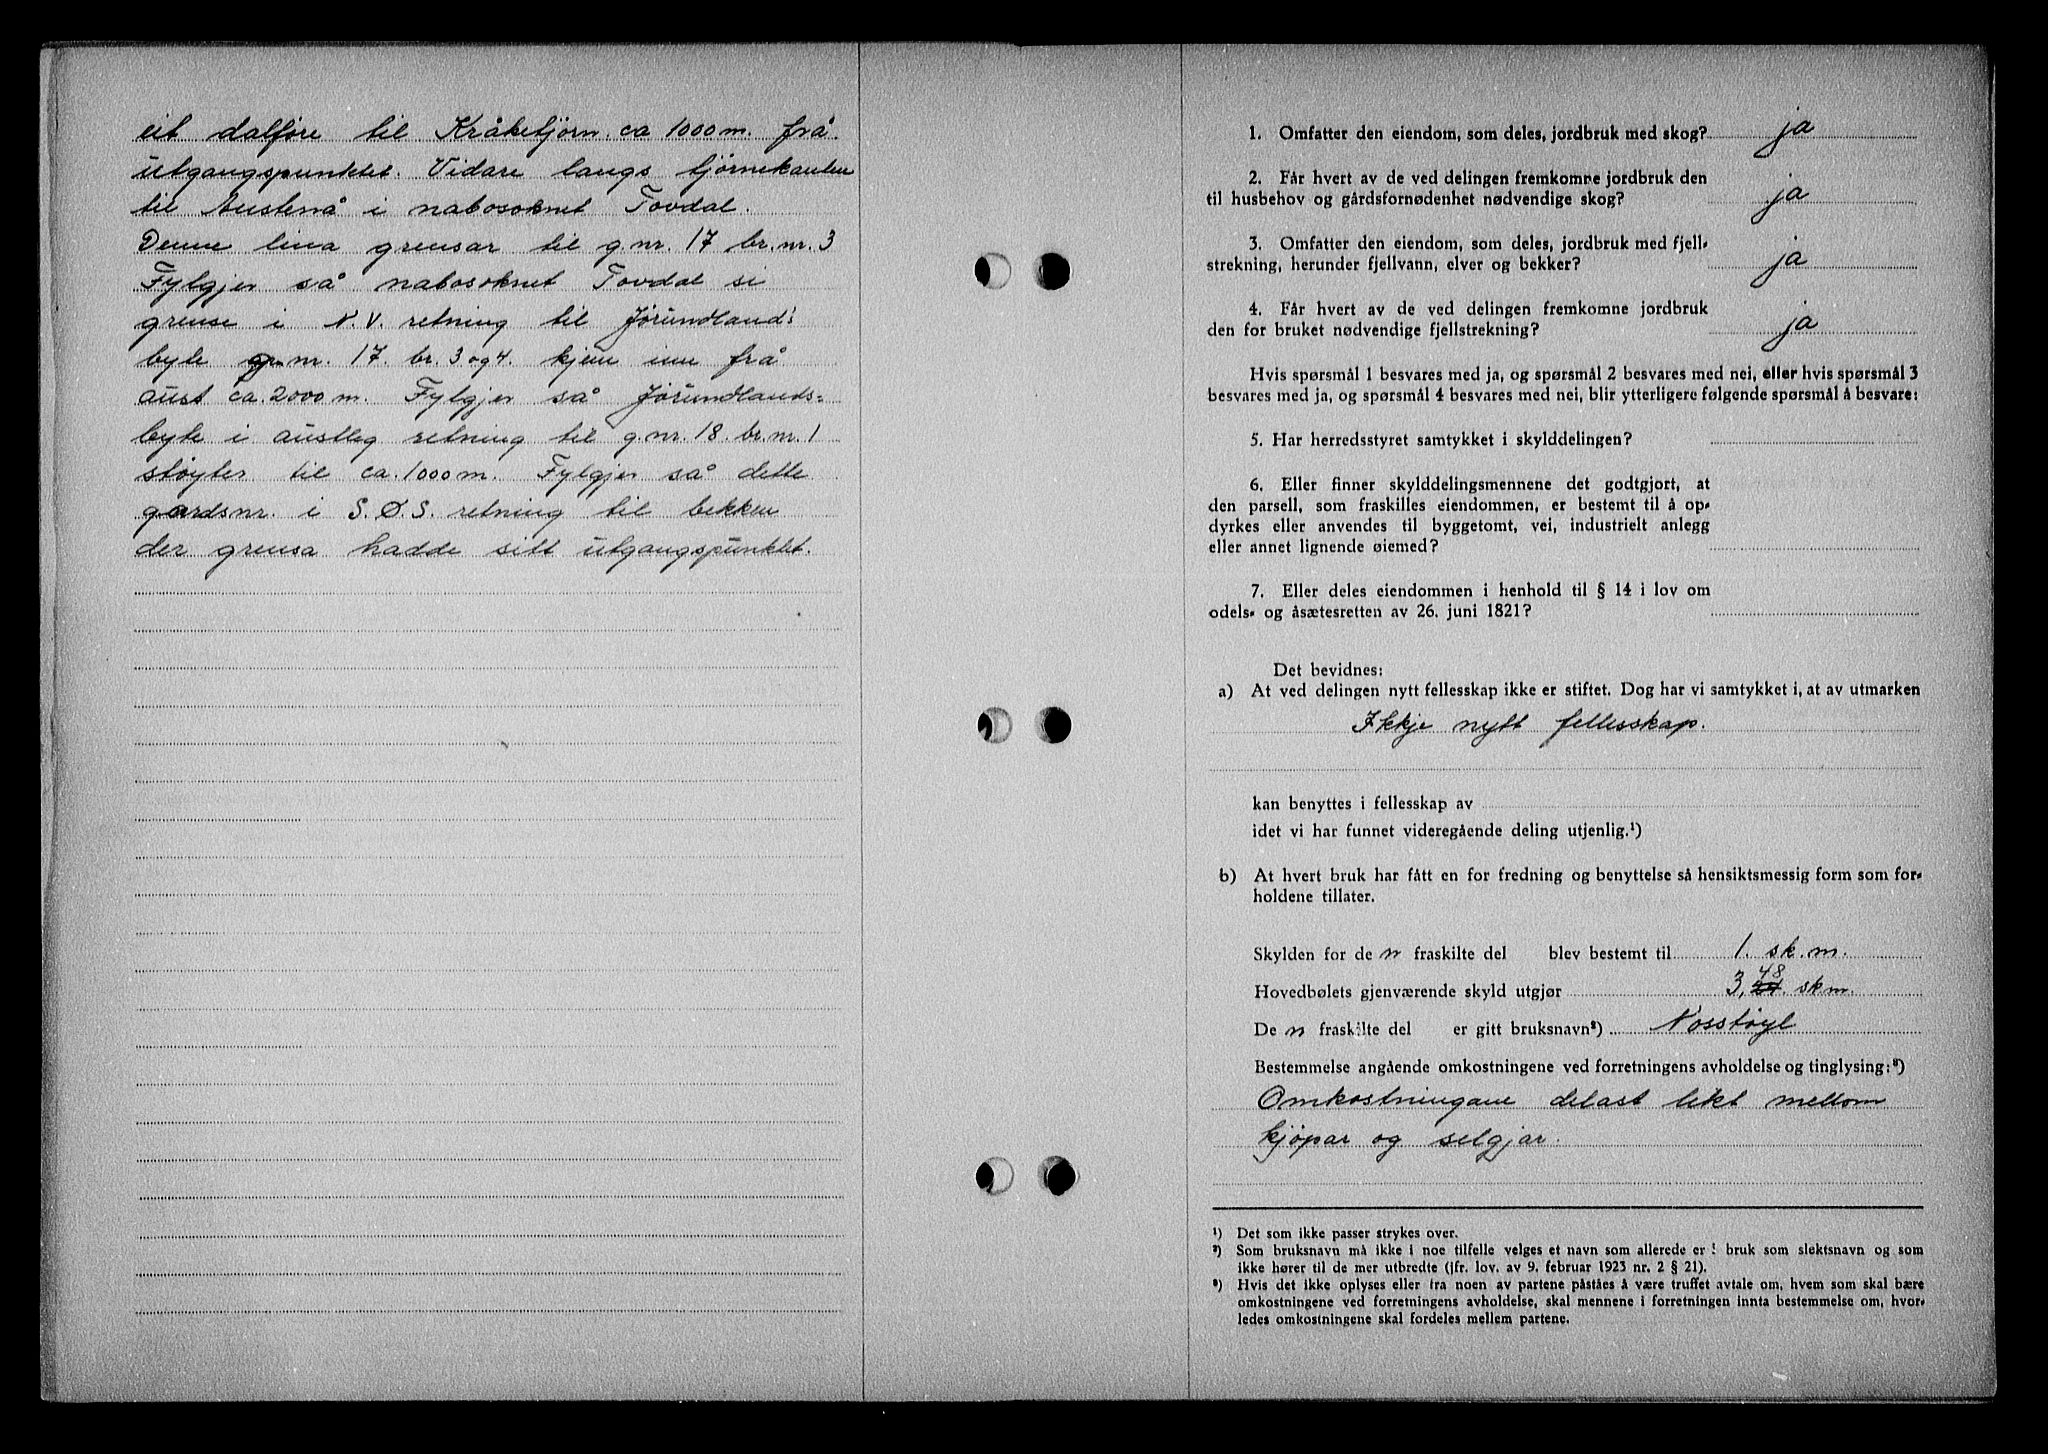 eit dalføre til Kråketjörn. ca 1000 m. frå
utgangspunktet. Vidare langs tjørnekanten
til Austenå i nabosoknet Tovdal.
Denne lina grensar til g.nr. 17 br.nr. 3
Fylgjer så nabosoknet Tovdal si
grense i N.V. retning til Jørundland:
byte gr.nr. 17. br. 3 og 4. kjem inn frå
aust ca. 2000 m. Fylgjer så Jørundlands=
byte i austleg retning til g.nr. 18. br.nr. 1
støyter til ca. 1000 m. Fylgjer så dette
gardsnr. i S.Ø.S. retning til bekken
der grensa hadde sitt utgangspunktet.
1. Omfatter den eiendom, som deles, jordbruk med skog? ja
2. Får hvert av de ved delingen fremkomne jordbruk den
til husbehov og gårdsfornødenhet nødvendige skog? ja
3. Omfatter den eiendom, som deles, jordbruk med fjell-
strekning, herunder fjellvann, elver og bekker? ja
4. Får hvert av de ved delingen fremkomne jordbruk
den for bruket nødvendige fjellstrekning? ja
Hvis spørsmål 1 besvares med ja, og spørsmål 2 besvares med nei, eller hvis spørsmål 3
besvares med ja, og spørsmål 4 besvares med nei, blir ytterligere følgende spørsmål å besvare:
5. Har herredsstyret samtykket i skylddelingen?
6. Eller finner skylddelingsmennene det godtgjort, at
den parsell, som fraskilles eiendommen, er bestemt til å op-
dyrkes eller anvendes til byggetomt, vei, industrielt anlegg
eller annet lignende øiemed?
7. Eller deles eiendommen i henhold til § 14 i lov om
odels- og åsætesretten av 26. juni 1821?
Det bevidnes:
a) At ved delingen nytt fellesskap ikke er stiftet. Dog har vi samtykket i, at av utmarken
Ikkje nytt fellesskap.
kan benyttes i fellesskap av
idet vi har funnet videregående deling utjenlig.¹)
b) At hvert bruk har fått en for fredning og benyttelse så hensiktsmessig form som for-
holdene tillater.
Skylden for de n fraskilte del blev bestemt til 1. sk.m.
48
Hovedbølets gjenværende skyld utgjør 3, sk m.
De n fraskilte del er gitt bruksnavn²) Nosstøyl
Bestemmelse angående omkostningene ved forretningens avholdelse og tinglysing:³)
Omkostningane delast likt mellom
kjöpar og selgjar.
¹) Det som ikke passer strykes over.
²) Som bruksnavn må ikke i noe tilfelle velges et navn som allerede er i bruk som slektsnavn og som
ikke hører til de mer utbredte (jfr. lov. av 9. februar 1923 nr. 2 § 21).
³) Hvis det ikke oplyses eller fra noen av partene påståes å være truffet avtale om, hvem som skal bære
omkostningene ved forretningens avholdelse, skal mennene i forretningen innta bestemmelse om, hvor-
ledes omkostningene skal fordeles mellem partene.